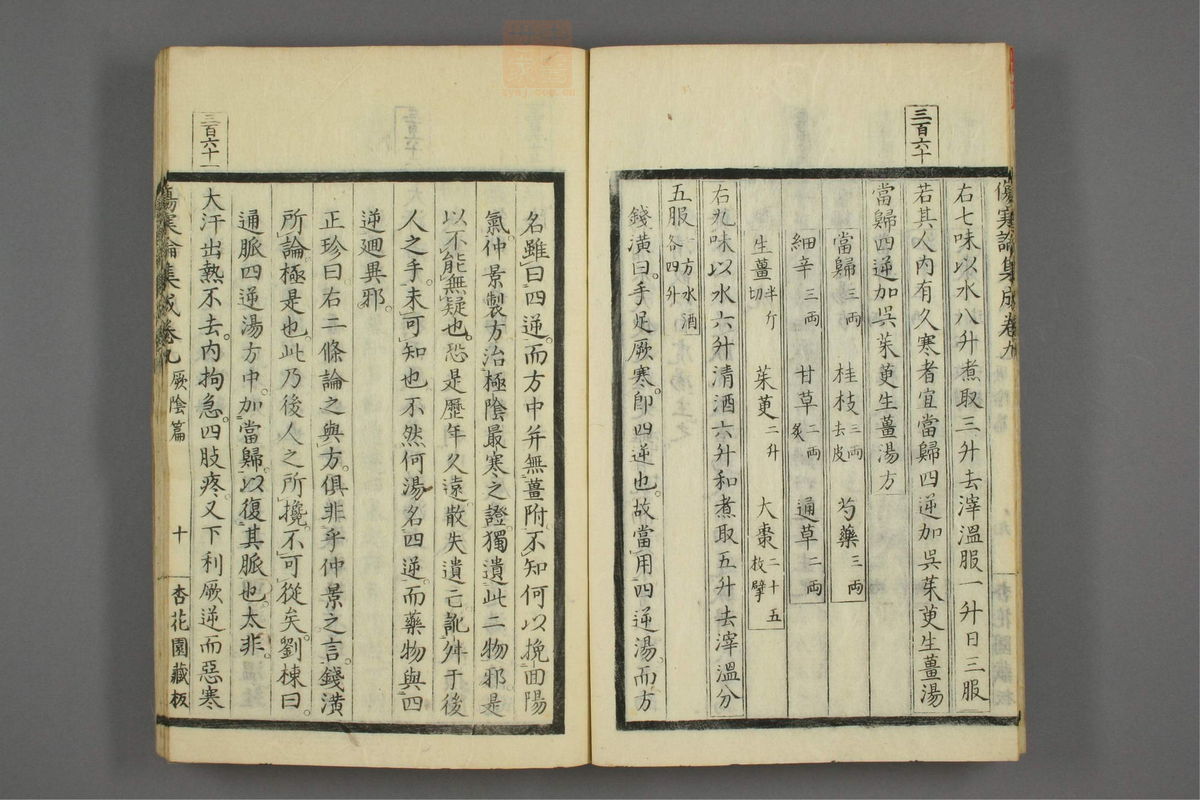 三百六十
傷寒論集成卷九
右七味以水八升煮取三升去滓溫服一升日三服
若其人內有久寒者宜當歸四逆加吳茱萸生薑湯
當歸四逆加吳茱萸生薑湯方
當歸三兩 桂枝三兩去皮 芍藥三兩
細辛三兩 甘草二兩炙 通草二兩
生薑半斤切 茱萸二升 大棗二十五枚擘
右九味以水六升清酒六升和煮取五升去滓溫分
五服一方水酒各四升
錢潢曰手足厥寒即四逆也故當用四逆湯而方
名雖曰四逆而方中并無薑附不知何以挽回陽
氣仲景製方治極陰最寒之證獨遺此二物邪是
以不能無疑也恐是歷年久遠散失遺亡訛舛于後
人之手未可知也不然何湯名四逆而藥物與四
逆廻異邪
正珍曰右二條論之與方俱非乎仲景之言錢潢
所論極是也此乃後人之所攙不可從矣劉棟曰
通脈四逆湯方中加當歸以復其脈也太非
三百六十一
大汗出熱不去內拘急四肢疼又下利厥逆而惡寒
傷寒論集成卷九 厥陰篇 十 杏花園藏板